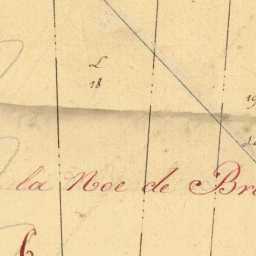 L
18
19
la Noe de Br